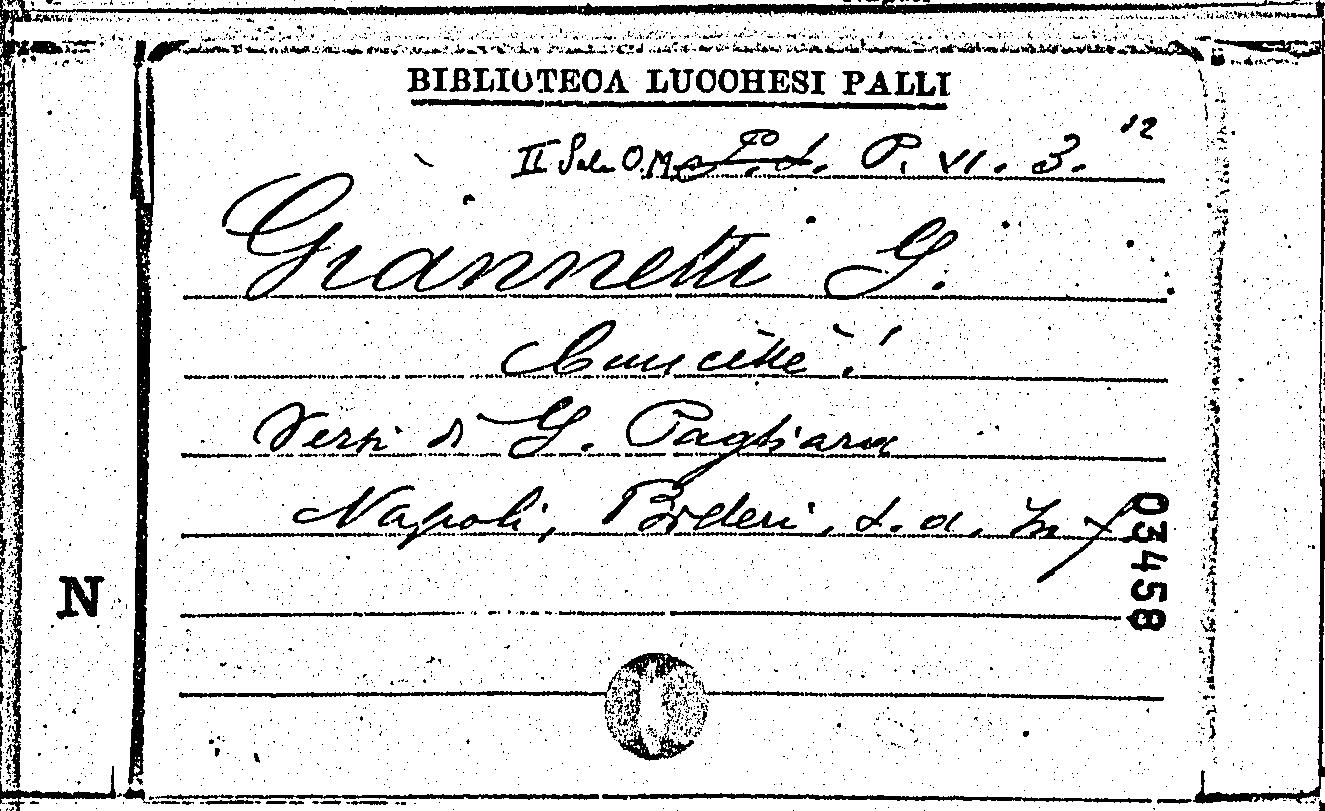 BIBLIOTECA LUCCHESI PALLI
II Sala O.M. P. VI. 3. 12
Giannetti G.
Cuncettè!
Versi di G. Pagliara
Napoli, Bideri, s. d. in f
03458
N